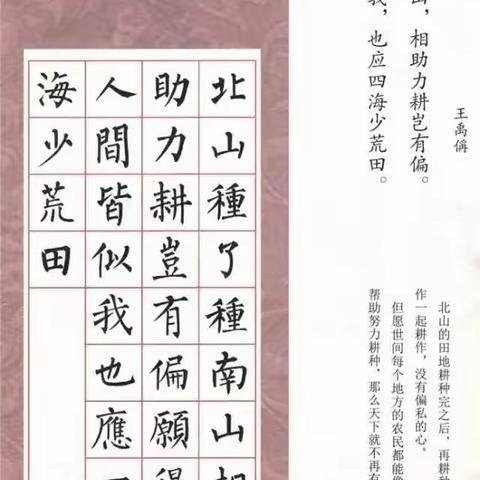 王禹偁
山，相助力耕岂有偏。
我，也应四海少荒田。
北山的田地耕种完之后，再耕种
作一起耕作，没有偏私的心。
但愿世间每个地方的农民都能像
帮助努力耕种，那么天下就不再有
北山種了種南山相
助力耕豈有偏願得
人間皆似我也應
海少荒田